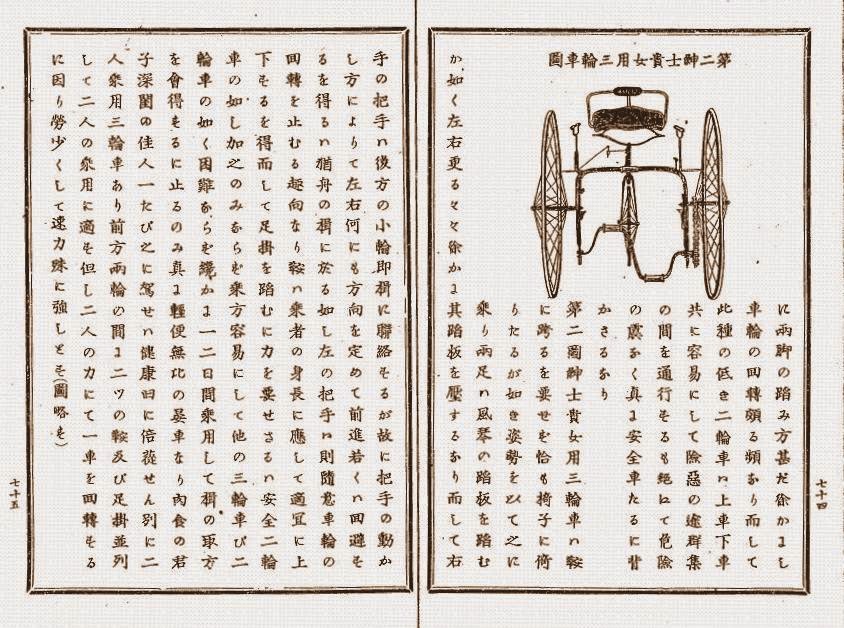 第二紳士貴女用三輪車圖
に兩脚の踏み方甚だ徐かよし
車輪の回轉頗る頻なり而して
此種の低き二輪車ハ上車下車
共に容易にして險惡の途群集
の間を通行そるも絶ゑて危險
の虞なく真よ安全車たるに背
かさるなり
第二圖紳士貴女用三輪車ハ鞍
に跨るを要せそ恰も椅子に倚
りたるが如き姿勢を以て之に
乘り兩足ハ風琴の踏板を踏む
か如く左右更る々々徐かよ其踏板を壓するなり而して右
七十四
手の把手ハ後方の小輪即楫に聯絡そるが故に把手の動か
し方によりて左右何にも方向を定めて前進若くハ回避そ
るを得るハ猶舟の楫に於る如し左の把手ハ則隨意車輪の
回轉を止むる趣向なり鞍ハ乘者の身長に應して適宜に上
下そるを得而して足掛を踏むに力を要せさるハ安全二輪
車の如し加之のみならそ乘方容易にして他の三輪車び二
輪車の如く困難ならそ纔かよ一二日間乘用して楫の取方
を會得そるに止るのみ真よ輕便無比の晏車なり肉食の君
子深閨の佳人一たび之に駕せハ健康日に倍蓰せん別に二
人乘用三輪車あり前方兩輪の間よ二ツの鞍及び足掛並列
して二人の乘用に適そ但し二人の力にて一車を回轉そる
に因り勞少くして速力殊に強しとそ(圖略そ)
七十五